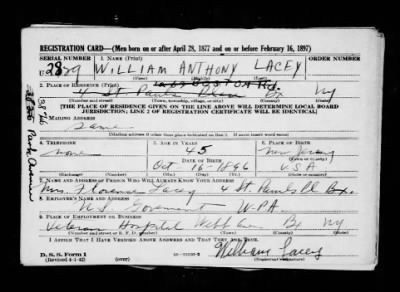 REGISTRATION CARD—(Men born on or after April 28, 1877 and on or before February 16, 1897)
SERIAL NUMBER
1. NAME (Print)
ORDER NUMBER
U 2829
WILLIAM ANTHONY LACEY
2. PLACE OF RESIDENCE (Print)
4 St Pauls Place Bx NY
(Number and street) (Town, township, village, or city) (County) (State)
[THE PLACE OF RESIDENCE GIVEN ON THE LINE ABOVE WILL DETERMINE LOCAL BOARD
JURISDICTION; LINE 2 OF REGISTRATION CERTIFICATE WILL BE IDENTICAL]
3. MAILING ADDRESS
Same
4. TELEPHONE
5. AGE IN YEARS
6. PLACE OF BIRTH
none
45
New Jersey
DATE OF BIRTH
Oct 16 1896
USA
7. NAME AND ADDRESS OF PERSON WHO WILL ALWAYS KNOW YOUR ADDRESS
Mrs. Florence Lacey 4 St Pauls Pl Bx.
8. EMPLOYER'S NAME AND ADDRESS
U.S. Goverment W.P.A.
9. PLACE OF EMPLOYMENT OR BUSINESS
Veteran Hospital Webb Ave Bx NY
(Number and street or R. F. D. number) (Town) (County) (State)
I AFFIRM THAT I HAVE VERIFIED ABOVE ANSWERS AND THAT THEY ARE TRUE.
D. S. S. Form 1
(Revised 4-1-42) (over)
William Lacey